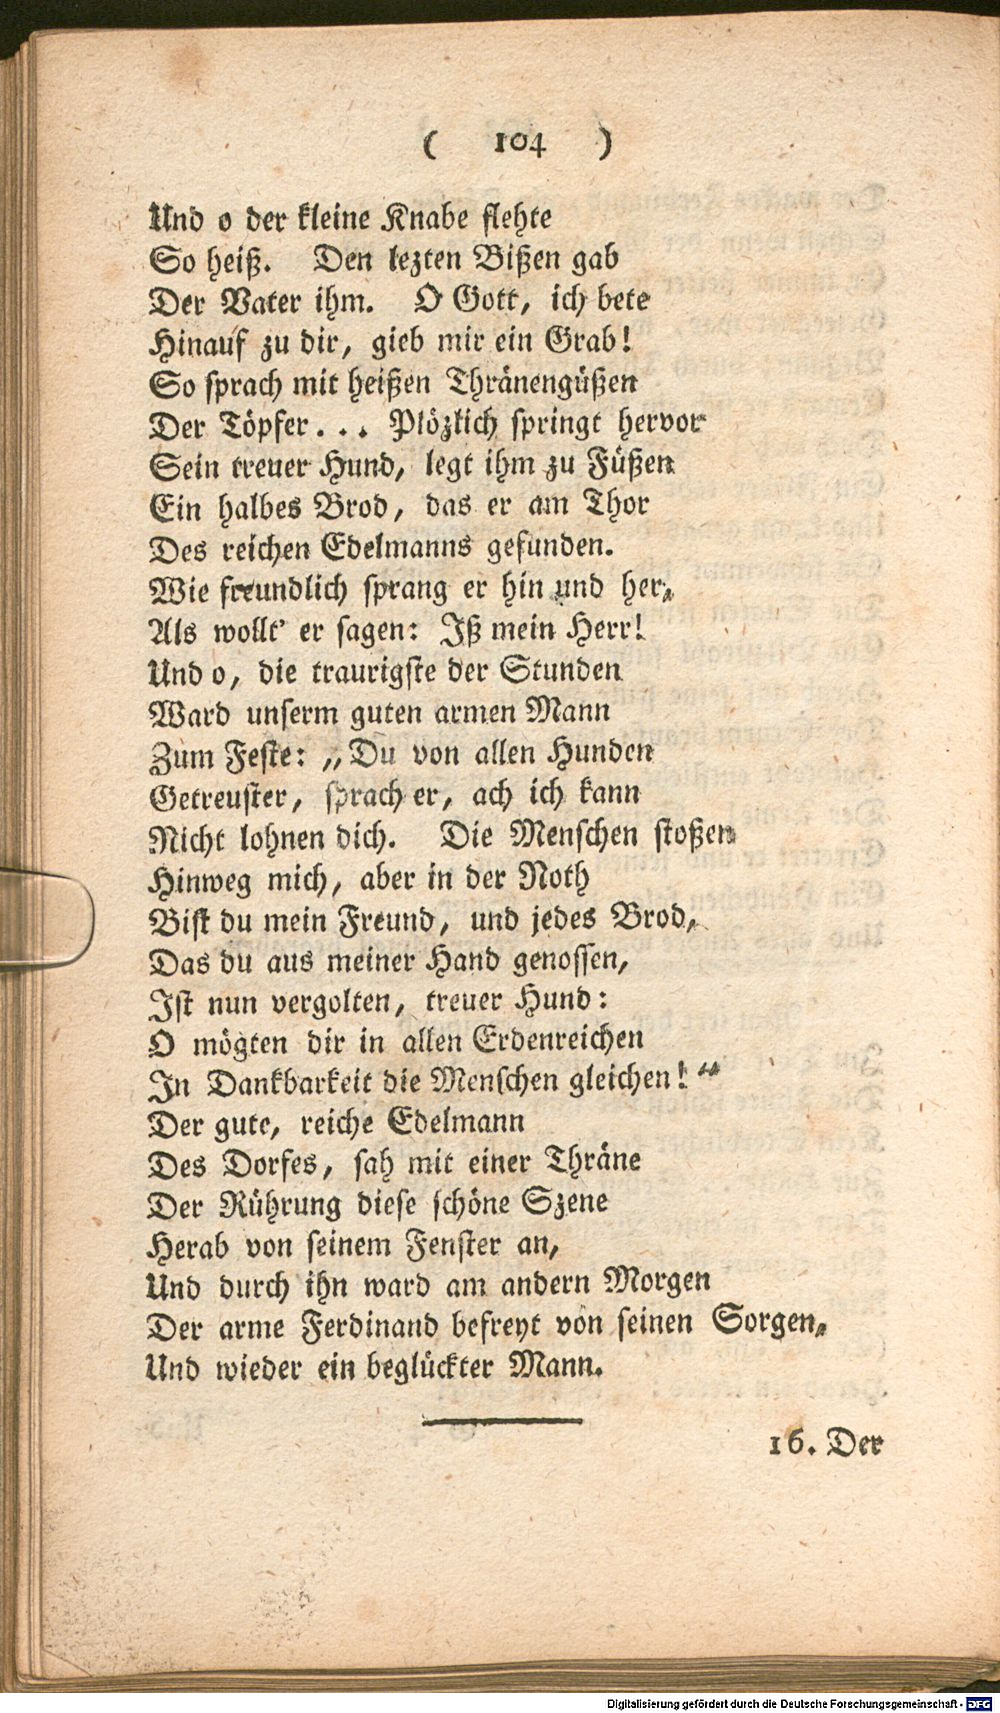 ( 104 )
Und o der kleine Knabe flehte
So heiß. Den lezten Bißen gab
Der Vater ihm. O Gott, ich bete
Hinauf zu dir, gieb mir ein Grab!
So sprach mit heißen Thränengüßen
Der Töpfer... Plözlich springt hervor
Sein treuer Hund, legt ihm zu Füßen
Ein halbes Brod, das er am Thor
Des reichen Edelmanns gefunden.
Wie freundlich sprang er hin und her,
Als wollt' er sagen: Iß mein Herr!
Und o, die traurigste der Stunden
Ward unserm guten armen Mann
Zum Feste: „Du von allen Hunden
Getreuster, sprach er, ach ich kann
Nicht lohnen dich. Die Menschen stoßen
Hinweg mich, aber in der Noth
Bist du mein Freund, und jedes Brod,
Das du aus meiner Hand genossen,
Ist nun vergolten, treuer Hund:
O mögten dir in allen Erdenreichen
In Dankbarkeit die Menschen gleichen!“
Der gute, reiche Edelmann
Des Dorfes, sah mit einer Thräne
Der Rührung diese schöne Szene
Herab von seinem Fenster an,
Und durch ihn ward am andern Morgen
Der arme Ferdinand befreyt von seinen Sorgen,
Und wieder ein beglückter Mann.
16. Der
Digitalisierung gefördert durch die Deutsche Forschungsgemeinschaft - DFG